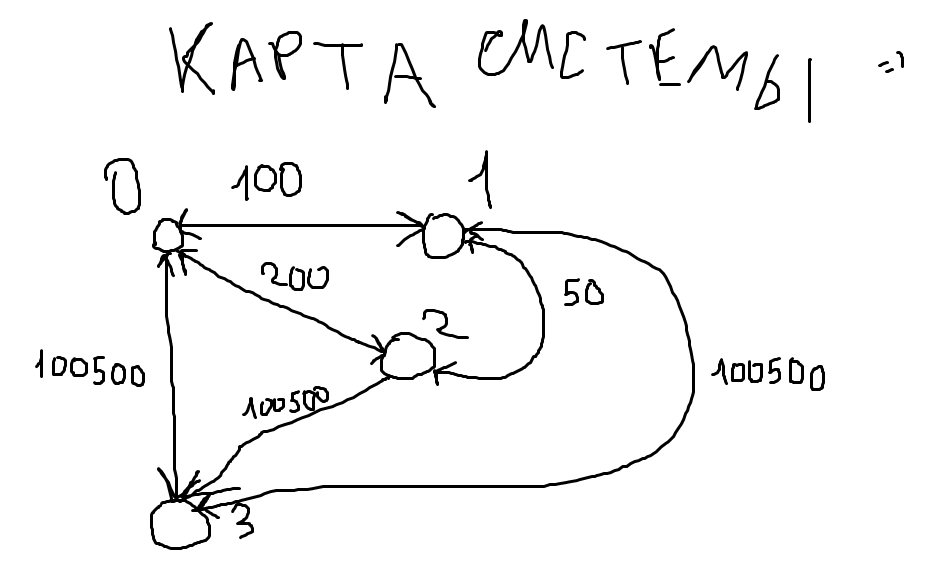 КАРТА СИСТЕМЫ =)
0 100 1
200
50
2
100500
100500
100500
3